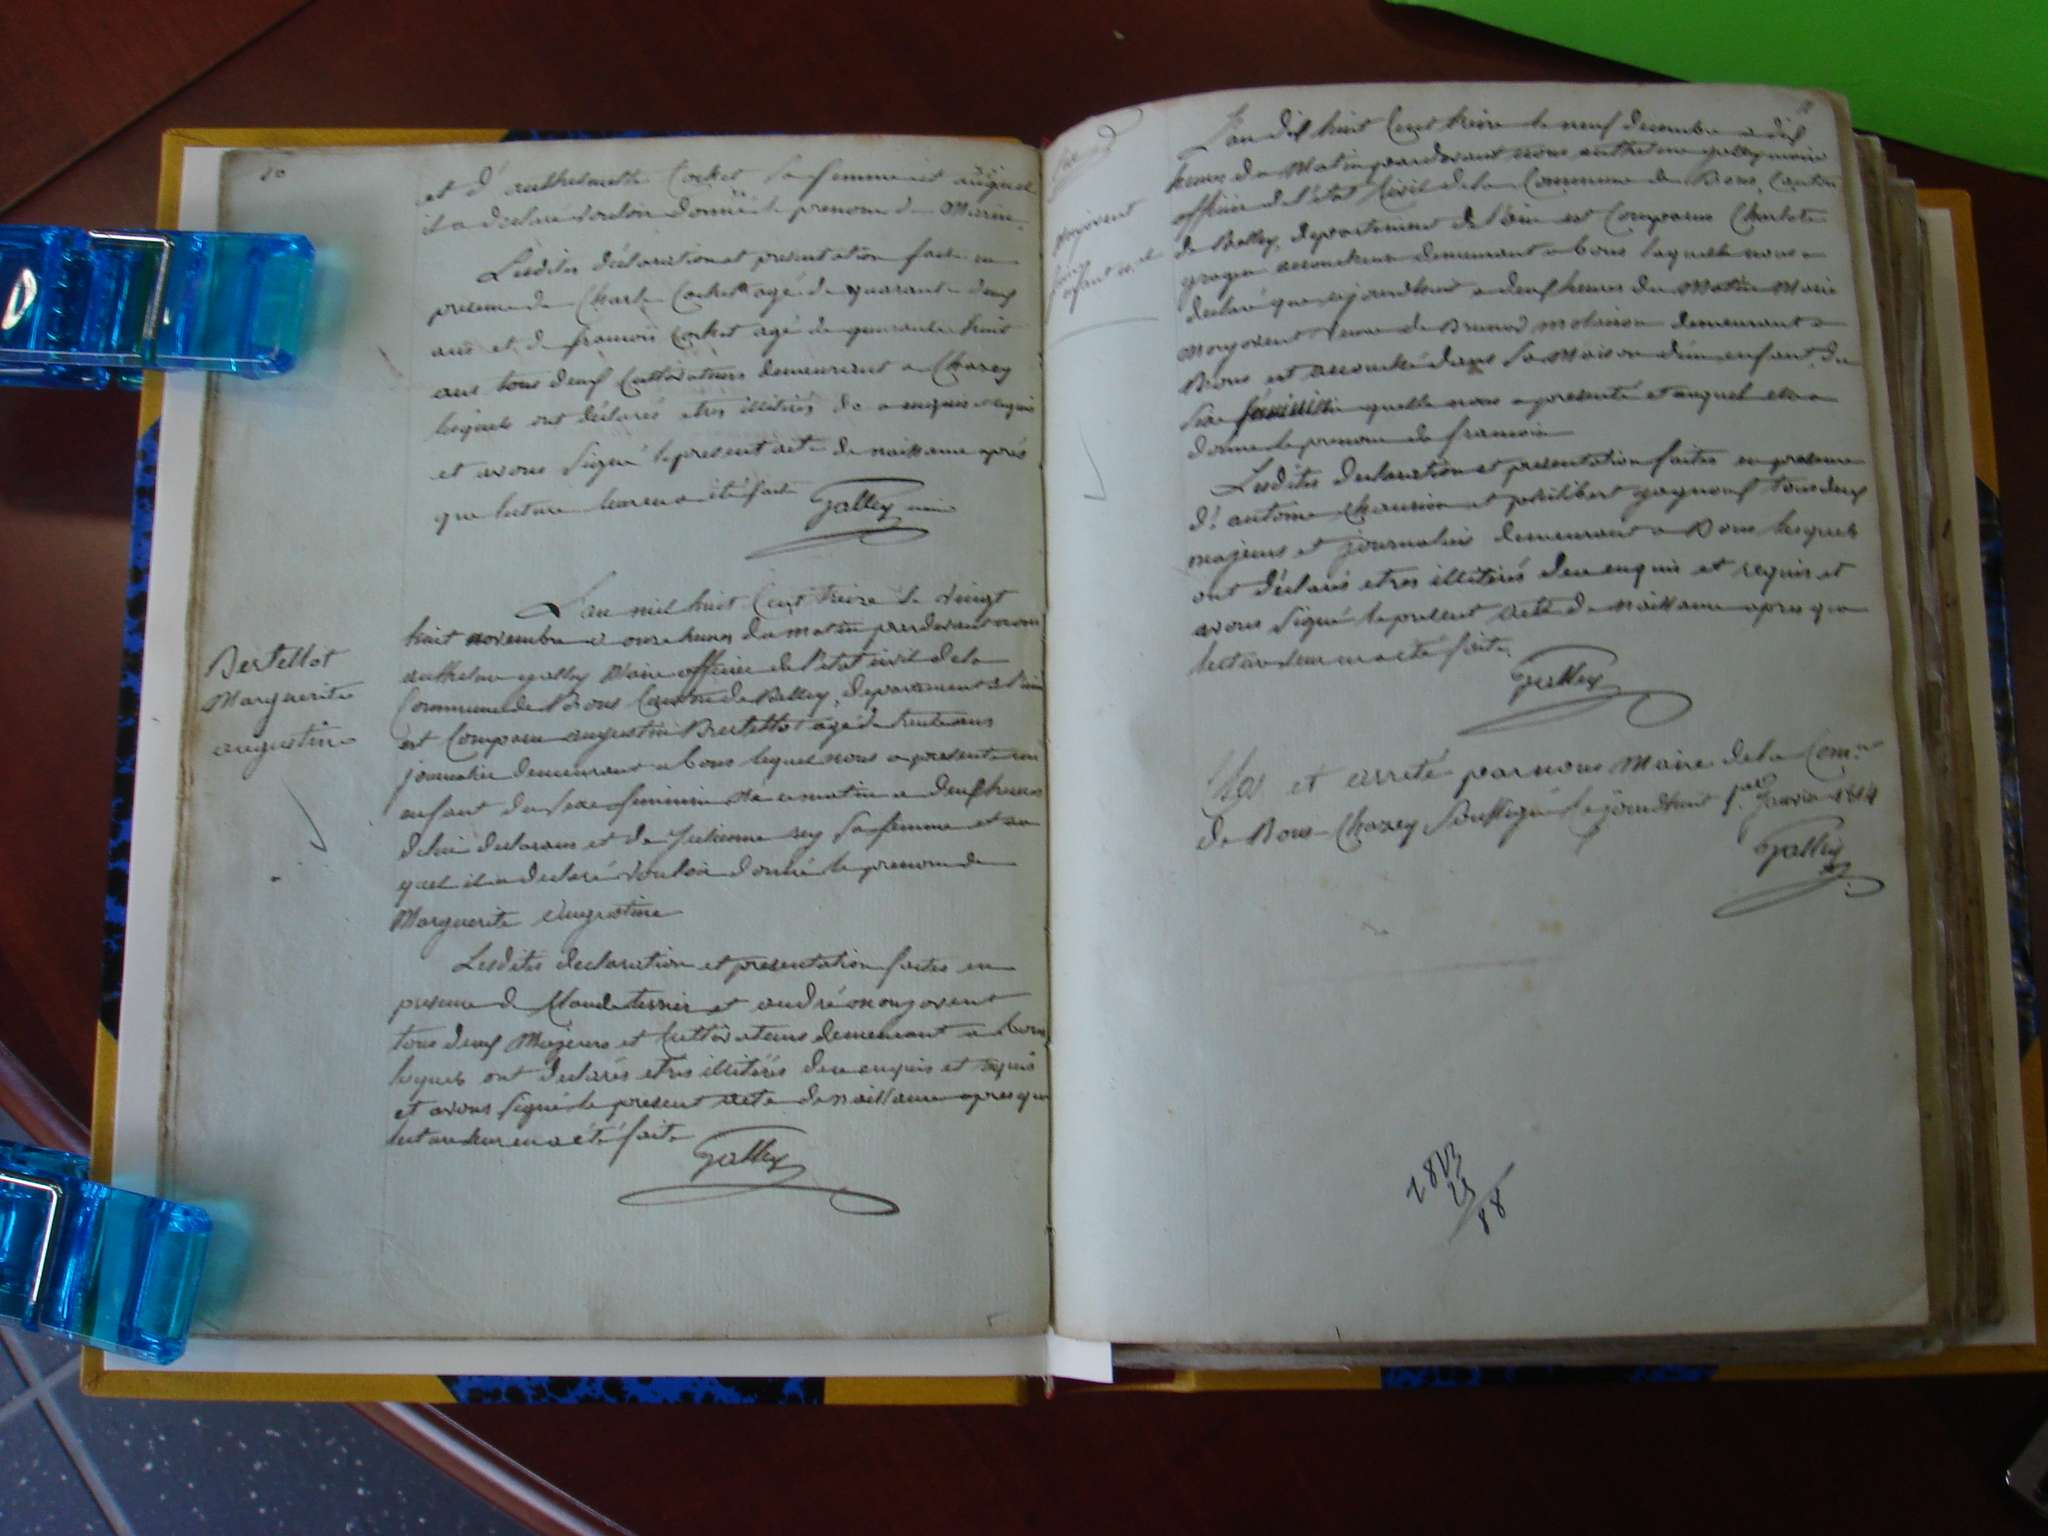 20
et d'anthelmette Cochet sa femme et auquel
il a déclaré vouloir donné le prenom de Marin
Lesdites déclaration et presentation faite en
presence de Charle Cochet agé de quarante deux
ans et de francois Cochet agé de quarante huit
ans tous deux Cultivateurs demeurant a Chazey
lesquels ont déclarés etres illitérés de ce enquis et requis
et avons Signé le present acte de naissance après
que lecture leur en a été faite Galley maire
L'an mil huit Cent treize le vingt
huit novembre a onze heures du matin pardevant nous
anthelme galley Maire officier de l'état civil de la
Commune de Bons Canton de Belley, departement de l'ain
est Comparu augustin Bertellot agé de trente ans
journalier demeurant a bons lequel nous a presenté un
enfant du sexe feminin né ce matin a deux heures
de lui declarant et de Julienne rey sa femme et au
quel il a declaré vouloir donné le prenom de
Marguerite Augustine
Bertellot
Marguerite
augustine
Lesdites declaration et presentation faites en
presence de Claude ternier et andré mongovent
tous deux Majeurs et Cultivateurs demeurant a bons
lesquels ont declarés etres illitérés de ce enquis et requis
et avons Signé le present acte de naissance apres que
lecture leur en a été faite
Galley
L'an dix huit Cent treize le neuf decembre a dix
heures du Matin pardevant nous anthelme galley maire
officier de l'état Civil de la Commune de Bons, Canton
de Belley, departement de l'ain est Comparus Charlote
accoucheuse demeurant a bons laquelle nous a
declaré que cejourdhui a deux heures du Matin Marie
Mongovent veuve de Brunod demeurant a
Bons est accouchée dans sa Maison d'un enfant du
Sexe quelle nous a presenté et auquel elle a
donné le prenom de francois
enfant n.el
Lesdites declaration et presentation faites en presence
d'antoine et philibert tous deux
majeurs et journaliers demeurant a Bons lesquels
ont déclarés etres illitérés de ce enquis et requis et
avons Signé le present acte de naissance apres que
lecture leur en a été faite
Galley
Clos et arreté par nous Maire de la Com.ne
de Bons Chazey Soussigné cejourdhuit 1.er Janvier 1814
Galley
1813
25
/88